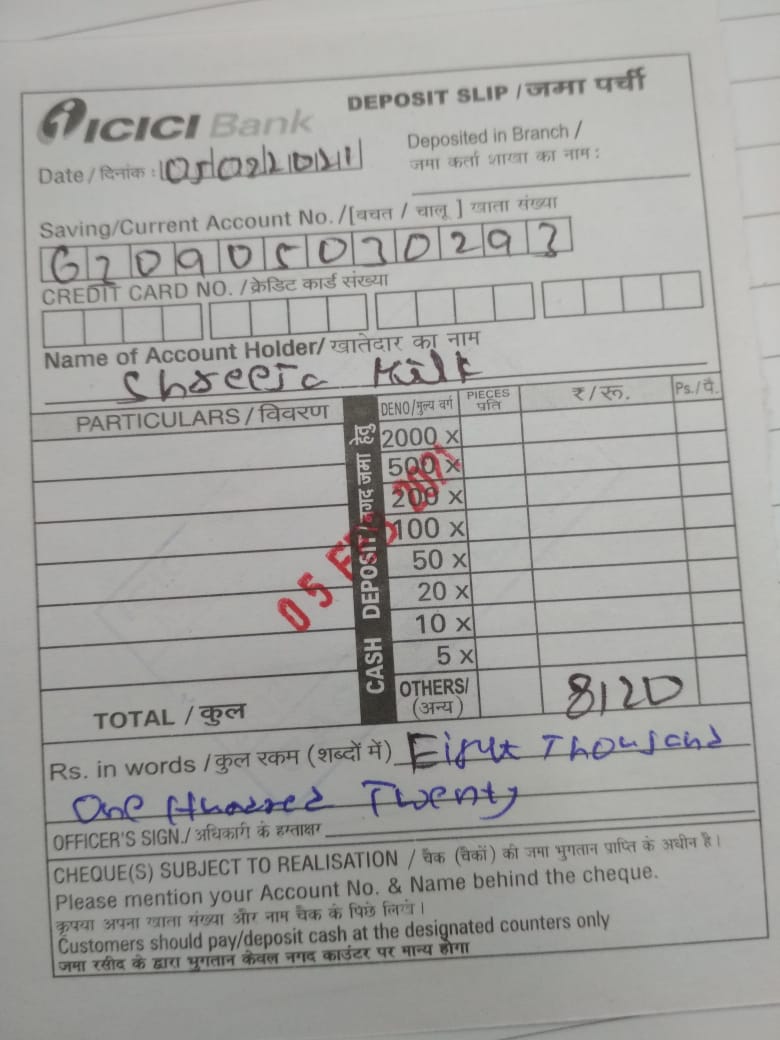 ICICI Bank
DEPOSIT SLIP / जमा पर्ची
Date / दिनांक : 05022021
Deposited in Branch /
जमा कर्ता शाखा का नाम :
Saving/Current Account No. /[बचत / चालू ] खाता संख्या
G20905030293
CREDIT CARD NO. /क्रेडिट कार्ड संख्या
Name of Account Holder/ खातेदार का नाम
Shreeja Milk
PARTICULARS / विवरण
CASH DEPOSIT / नगद जमा हेतु
DENO/मुल्य वर्ग PIECES प्रति ₹/रू. Ps./पै.
2000 x
500 x
200 x
100 x
50 x
20 x
10 x
5 x
05 FEB 2021
TOTAL / कुल OTHERS/ (अन्य) 8120
Rs. in words / कुल रकम (शब्दों में) Eight Thousand
One Hundred Twenty
OFFICER'S SIGN./ अधिकारी के हस्ताक्षर
CHEQUE(S) SUBJECT TO REALISATION / चैक (चैकों) की जमा भुगतान प्राप्ति के अधीन है।
Please mention your Account No. & Name behind the cheque.
कृपया अपना खाता संख्या और नाम चैक के पिछे लिखें।
Customers should pay/deposit cash at the designated counters only
जमा रसीद के द्वारा भुगतान केवल नगद काउंटर पर मान्य होगा